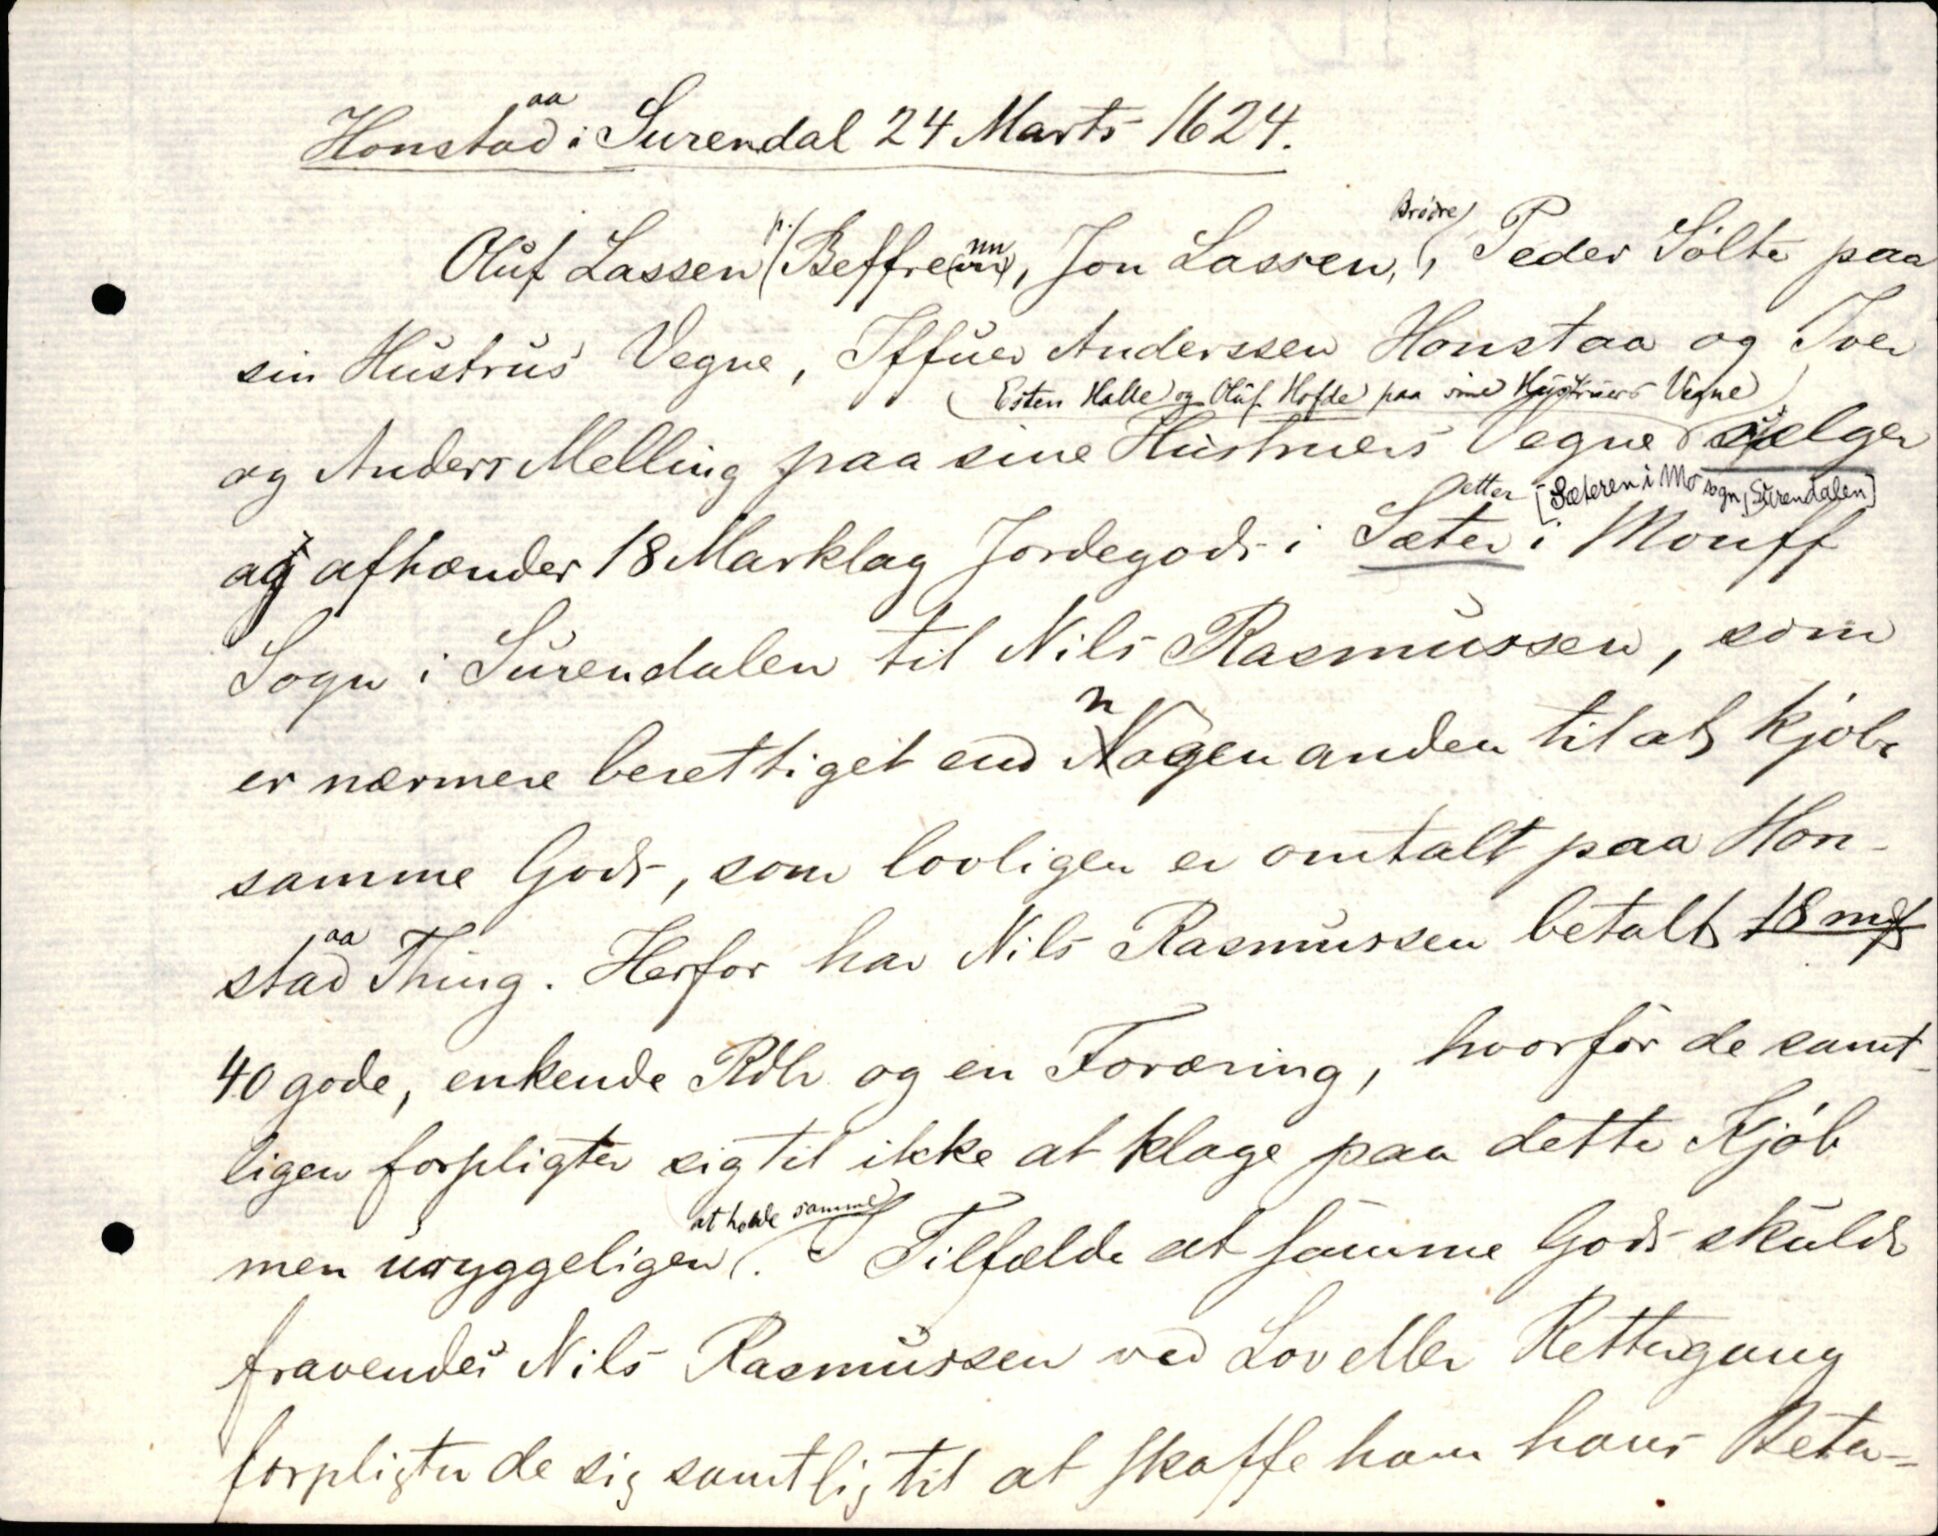 aa
Honstad i Surendal 24 Marts 1624.
p. Brödre
Oluf Lassen (Beffrem, nn Jon Lassen, Peder Sölte paa
sin Hustrus Vegne, Iffuer Anderssen Honstaa og Iver
(Esten Halle og Oluf Hofte paa sine Hustruers Vegne)
og Anders Melling paa sine Hustruers Vegne sælger
etter [Sæteren i Mo sogn, Surendalen]
og afhænder 18 Marklag Jordegods i Sæter i Mouff
Sogn i Surendalen til Nils Rasmussen, som
n
er nærmere berettiget end Nogen anden til at kjöbe
samme Gods, som lovligen er omtalt paa Hon-
aa
stad Thing. Herfor har Nils Rasmussen betalt 18
40 gode, enkende Rdlr og en Foræring, hvorfor de samt-
ligen forpligter sig til ikke at klage paa dette Kjöb
at holde samme
men uryggeligen. I Tilfælde at samme Gods skulde
fravendes Nils Rasmussen ved Lov eller Rettergang
forpligter de sig samtlig til at skaffe ham hans Beta-